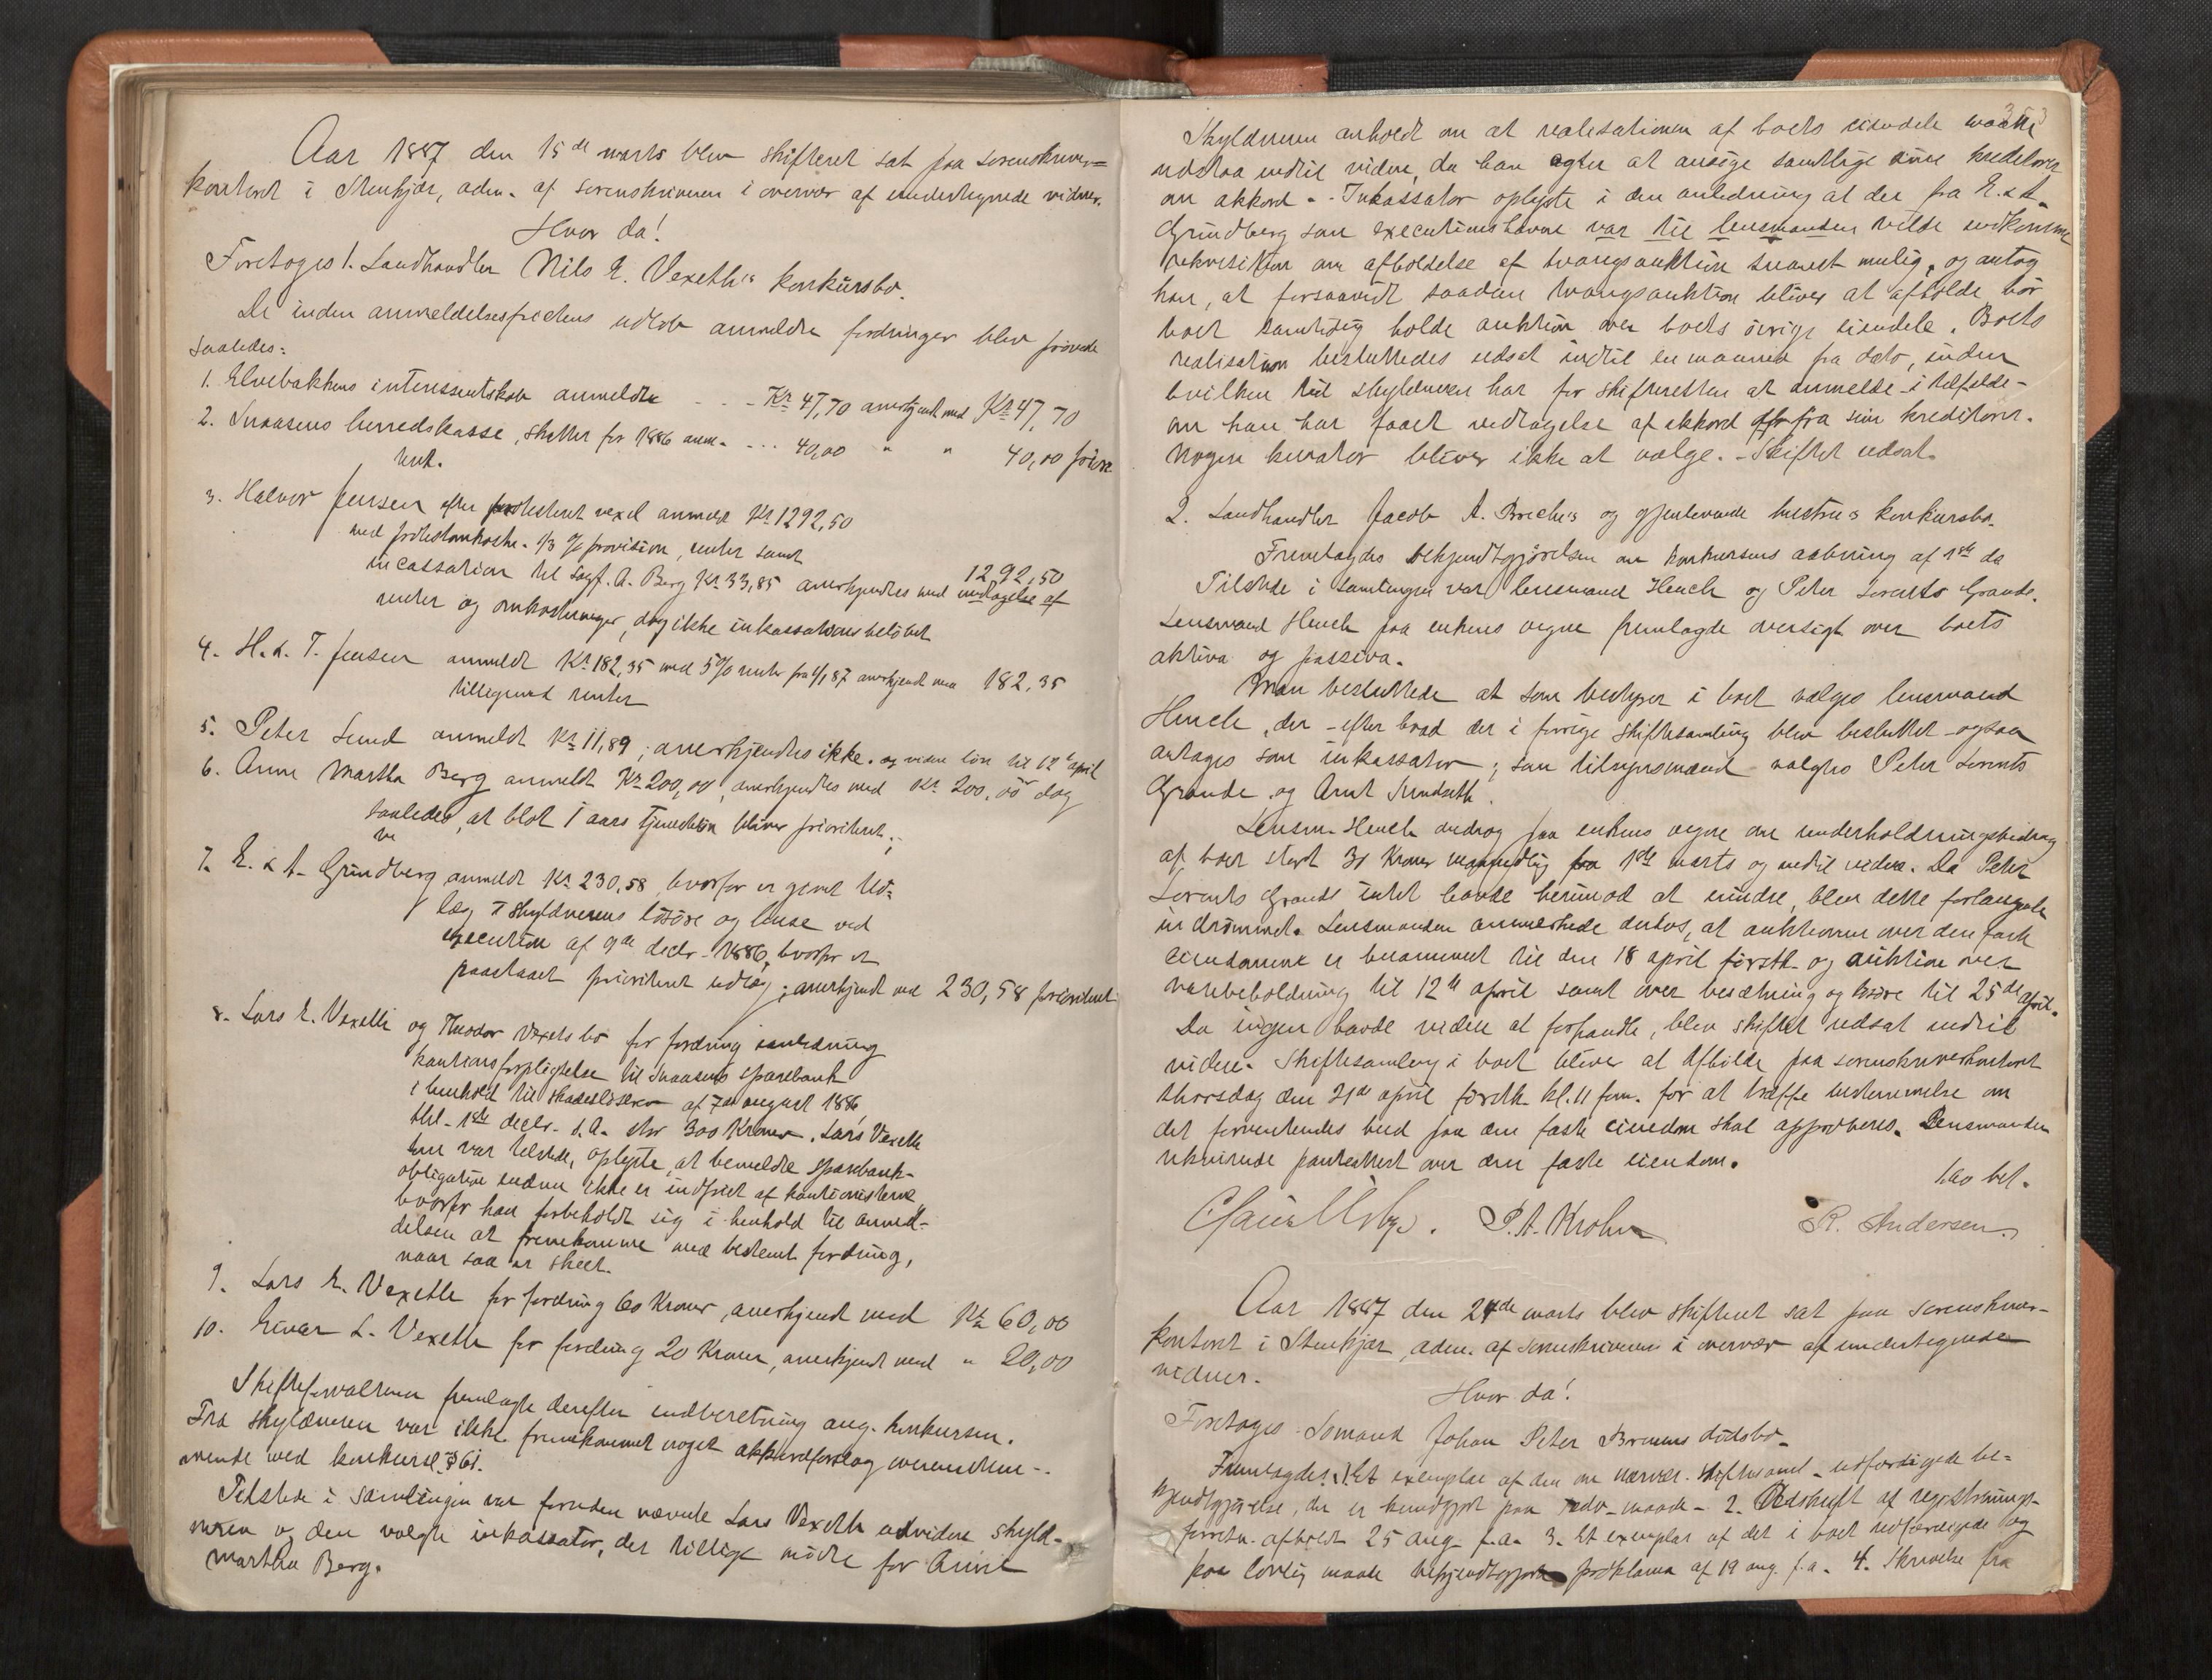 Aar 1887 den 15de marts blev skifteret sat paa sorenskriver=
kontoret i Stenkjær, adm. af sorenskriveren i overvær af undertegnede vidner.
Hvor da!
Foretoges 1. Landhandler Nils E. Vexeth's konkursbo.
De inden anmeldelsesfristens udløb anmeldte fordringer blev prøvede
saaledes:
1. Elvebakkens interessentskab anmeldte - - - Kr 47,70 anerkjendt med Kr 47,70
2. Snaasens herredskasse, skatter for 1886 anm. - ... 40,00 " " 40,00 priori
teret.
3. Halvor Jensen efter protesteret vexel anmeldt Kr 1292,50
med protestomkostn. 1/3 % provision, renter samt
incassation til sagf. A. Berg Kr 33,85 anerkjendtes med 1292,50
undtagelse af
renter og omkostninger, dog ikke inkassationsbeløbet
4. H. & T. Jensen anmeldt Kr. 182,35 med 5% renter fra 1/1 87 anerkjendt med 182,35
tillegmed renter
5. Peter Lund anmeldt Kr 11,89; anerkjendtes ikke. og videre løn til 12te april
6. Anne Martha Berg anmeldt Kr 200,00, anerkjendtes med Kr. 200,00 dog
saaledes, at blot 1 aars tjenesteløn bliver prioriteret.;
7. E. & A. Grindberg anmeldt Kr. 230,58, hvorfor er givet Ud=
læg i skyldnerens løsøre og huse ved
execution af 9de decbr. 1886, hvorfor er
paastaaet prioriteret udlæg; anerkjendt med 230,58 prioriteret
8. Lars E. Vexeth og Theodor Vexets bo for fordring i anledning
kautionsforpligtelse til Snaasens sparebank
i henhold til skadesløsbrev af 7de august 1886,
thl. 1ste decbr. s.A. stor 300 Kroner. Lars Vexeth
som var tilstede, oplyste, at bemeldte sparebank-
obligation endnu ikke er indfriet af kautionisterne
hvorfor han forbeholdt sig i henhold til anmel-
delsen at fremkomme med bestemt fordring,
naar saa er skeet.
9. Lars E. Vexeth for fordring 60 Kroner, anerkjendt med Kr 60,00
10. Einar L. Vexeth for fordring 20 Kroner, anerkjendt med " 20,00
Skifteforvalteren fremlagte derefter indberetning ang. konkursen.
Fra skyldneren var ikke fremkommet noget akkordforslag overensstem-
mende med konkursl. § 61.
Tilstede i samlingen var foruden nævnte Lars Vexeth endvidere skyld-
neren og den valgte inkassator, der tillige mødte for Anne
Martha Berg.
353
Skyldneren anholdt om at realisationen af boets eiendele maatte
udstaa indtil videre, da han agter at ansøge samtlige sine kreditorer
om akkord. - Inkassator oplyste i den anledning at der fra E. & A.
Grindberg som executionshavere var til lensmanden vilde indkomme
rekvisition om afholdelse af tvangsauktion snarest mulig, og antog
han, at forsaavidt saadan tvangsauktion bliver at afholde, bør
boet samtidig holde auktion over boets øvrige eiendele. Boets
realisation besluttedes udsat indtil en maaned fra dato, inden
hvilken tid skyldneren har for skifteretten at anmelde - i tilfælde -
om han har faaet vedtagelse af akkord fra sine kreditorer.
Nogen kurator bliver ikke at vælge. - Skiftet udsat.
2. Landhandler Jacob A. Brede's og gjenlevende hustrus konkursbo.
Fremlagdes bekjendtgjørelsen om konkursens aabning af 1ste ds
Tilstede i samlingen var lensmand Hench og Peter Lorents Grande.
Lensmand Hench paa enkens vegne fremlagde oversigt over boets
aktiva og passiva.
Man besluttede at som bestyrer i boet vælges lensmand
Hench, der - efter hvad der i forrige skiftesamling blev besluttet - ogsaa
antages som inkassator; som tilsynsmænd valgtes Peter Lorents
Grande og Arnt Sundseth.
Lensm. Hench androg paa enkens vegne om underholdningsbidrag
af boet stort 30 Kroner maanedlig fra 1ste marts og indtil videre. Da Peter
Lorents Grande intet havde herimod at erindre, blev dette forlangende
indrømmet. Lensmanden anmerkede derhos, at auktionen over den faste
eiendomme er berammet til den 18 april førstk. og auktion over
varebeholdning til 12te april samt over besætning og løsøre til 25de april.
Da ingen havde videre at forhandle, blev skiftet udsat indtil
videre. Skiftesamling i boet bliver at afholde paa sorenskriverkontoret
thorsdag den 21de april førstk. kl. 11 fm. for at træffe bestemmelse om
det forventendes bud paa den faste eiendom skal approberes. Lensmanden
rekvirerede panteattest over den faste eiendom.
Lav bet.
P. A. Krohn R. Andersen.
Aar 1887 den 24de marts blev skifteret sat paa sorenskriver-
kontoret i Stenkjær, adm. af sorenskriveren i overvær af undertegnede
vidner.
Hvor da!
Foretoges Somand Johan Peter Brumns dødsbo.
Fremlagdes: 1. Et exemplar af den om nærvær. skiftesaml. udfærdigede be=
kjendtgjørelse, der er kundgjort paa maade - 2. Udskrift af registrerings-
forretn. afholdt 25 aug. f.a. 3. Et exemplar af det i boet udfærdigede og
paa lovlig maade bekjendtgjorte proklama af 19 aug. f.a. 4. Skrivelse fra